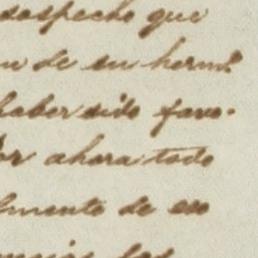 sospecho que
n de su herm.
haber sido favo-
or ahora todo
lmente de eso